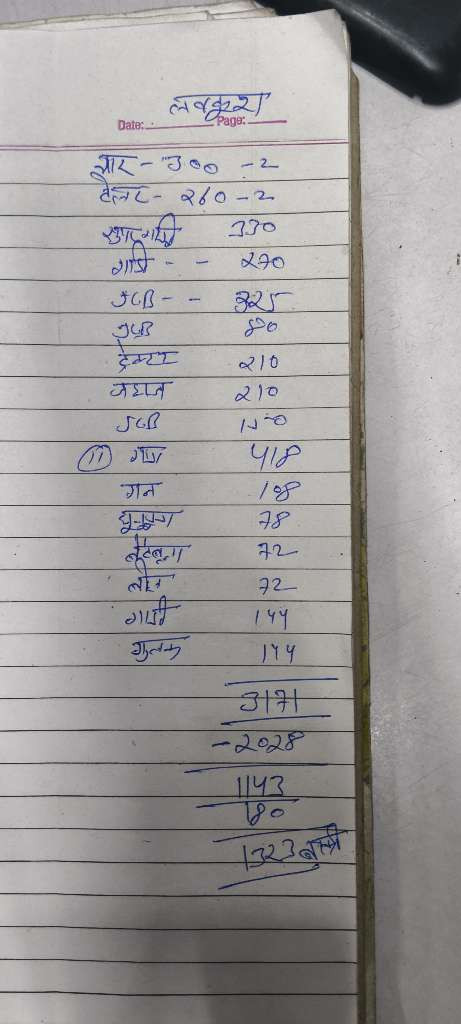 लवकुश
Date: Page:
300 - 2
टेलर - 260 - 2
330
गाडी - - 270
JCB - - 325
JCB 80
ट्रेक्टर 210
जहाज 210
JCB 150
(11) गदा 418
गन 108
78
72
72
गाडी 144
गुलक 144
3171
- 2028
1143
180
1323